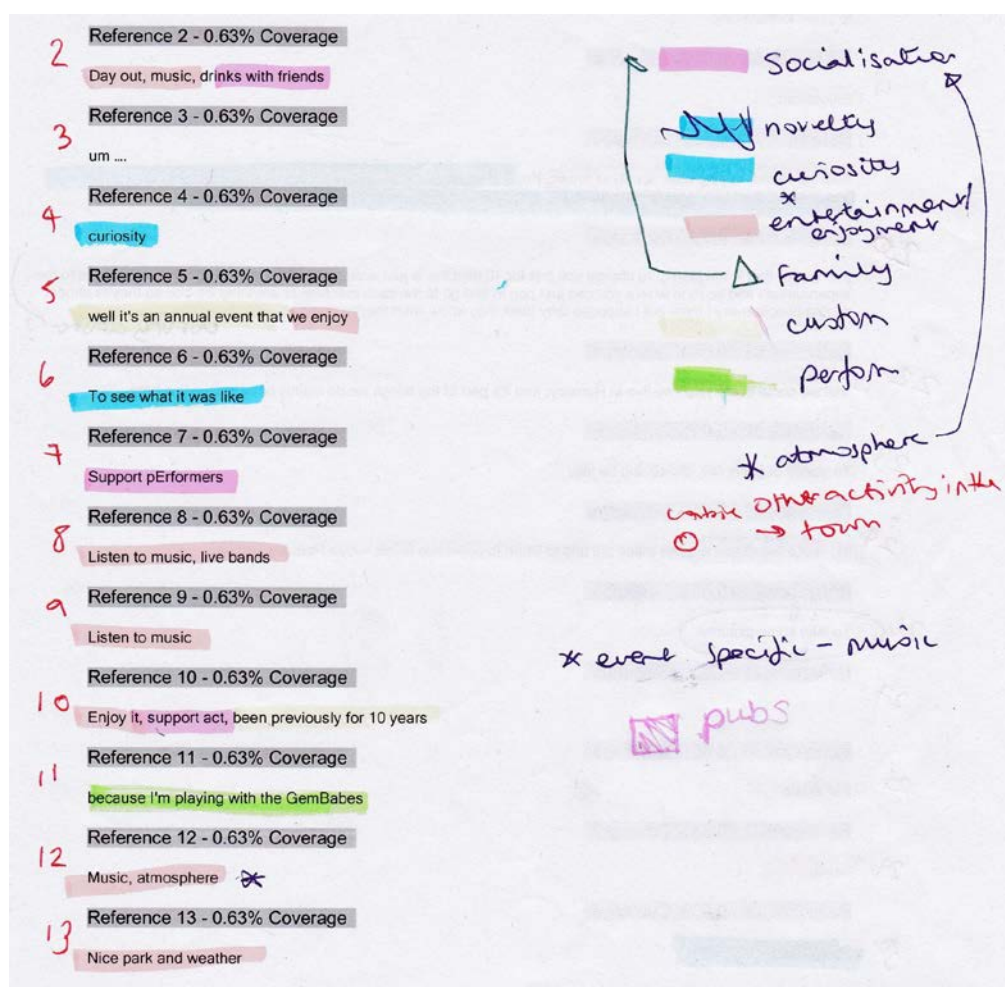 2
Reference 2 - 0.63% Coverage
Day out, music, drinks with friends
3
Reference 3 - 0.63% Coverage
um ....
4
Reference 4 - 0.63% Coverage
curiosity
5
Reference 5 - 0.63% Coverage
well it's an annual event that we enjoy
6
Reference 6 - 0.63% Coverage
To see what it was like
7
Reference 7 - 0.63% Coverage
Support pErformers
8
Reference 8 - 0.63% Coverage
Listen to music, live bands
9
Reference 9 - 0.63% Coverage
Listen to music
10
Reference 10 - 0.63% Coverage
Enjoy it, support act, been previously for 10 years
11
Reference 11 - 0.63% Coverage
because I'm playing with the GemBabes
12
Reference 12 - 0.63% Coverage
Music, atmosphere *
13
Reference 13 - 0.63% Coverage
Nice park and weather
Socialisation
novelty
curiosity
*
entertainment/
enjoyment
Family
custom
perform
* atmosphere
other activity in the
→ town
* event specific - music
pubs